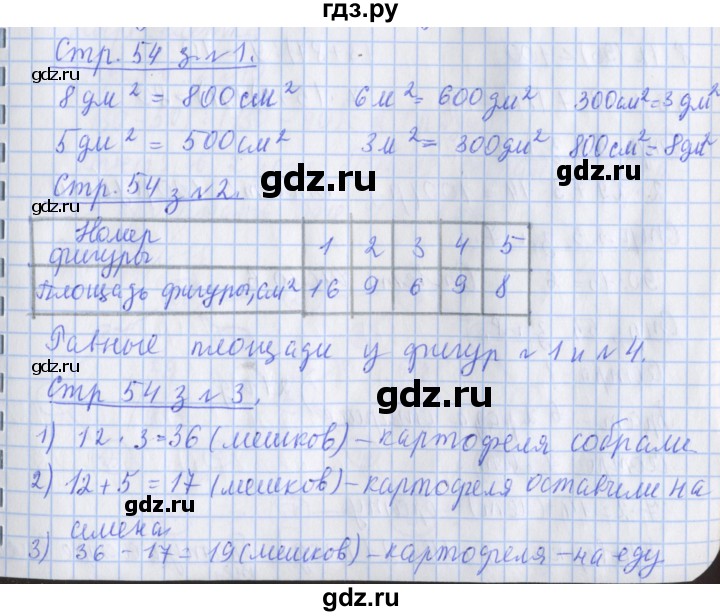 гдз.ру
Стр. 54 з. №1.
gdz.ru
8 дм² = 800 см² 6 м² = 600 дм² 300 см² = 3 дм²
gdz.ru
5 дм² = 500 см² 3 м² = 300 дм² 800 см² = 8 дм²
gdz.ru
gdz.ru
Стр. 54 з №2.
gdz.ru
Номер фигуры 1 2 3 4 5
Площадь фигуры, см² 16 9 6 9 8
Равные площади у фигур №1 и №4.
gdz.ru
Стр 54 з №3.
gdz.ru
1) 12 · 3 = 36 (мешков) – картофеля собрали
2) 12 + 5 = 17 (мешков) – картофеля оставили на
gdz.ru
gdz.ru
семена
3) 36 – 17 = 19 (мешков) – картофеля – на еду
gdz.ru
gdz.ru